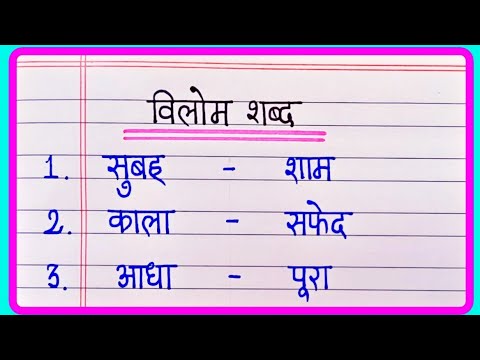 विलोम शब्द
1. सुबह - शाम
2. काला - सफेद
3. आधा - पूरा